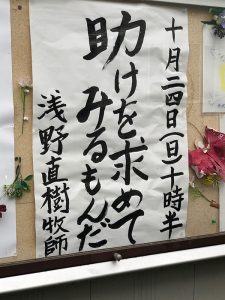 十月二四日(日)十時半
助けを求めて
みるもんだ
浅野直樹牧師